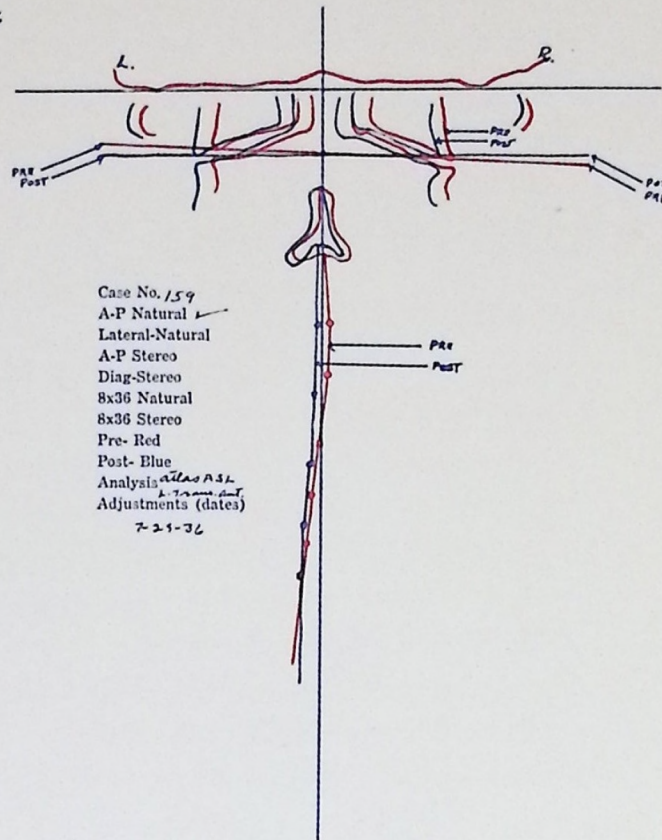 L.
R.
PRE
POST
PRE
POST
PRE
POST
Case No. 159
A-P Natural ✓
Lateral-Natural
A-P Stereo
PRE
Diag-Stereo
POST
8x36 Natural
8x36 Stereo
Pre- Red
Post- Blue
Analysis atlas ASL
L. Trans. Ant.
Adjustments (dates)